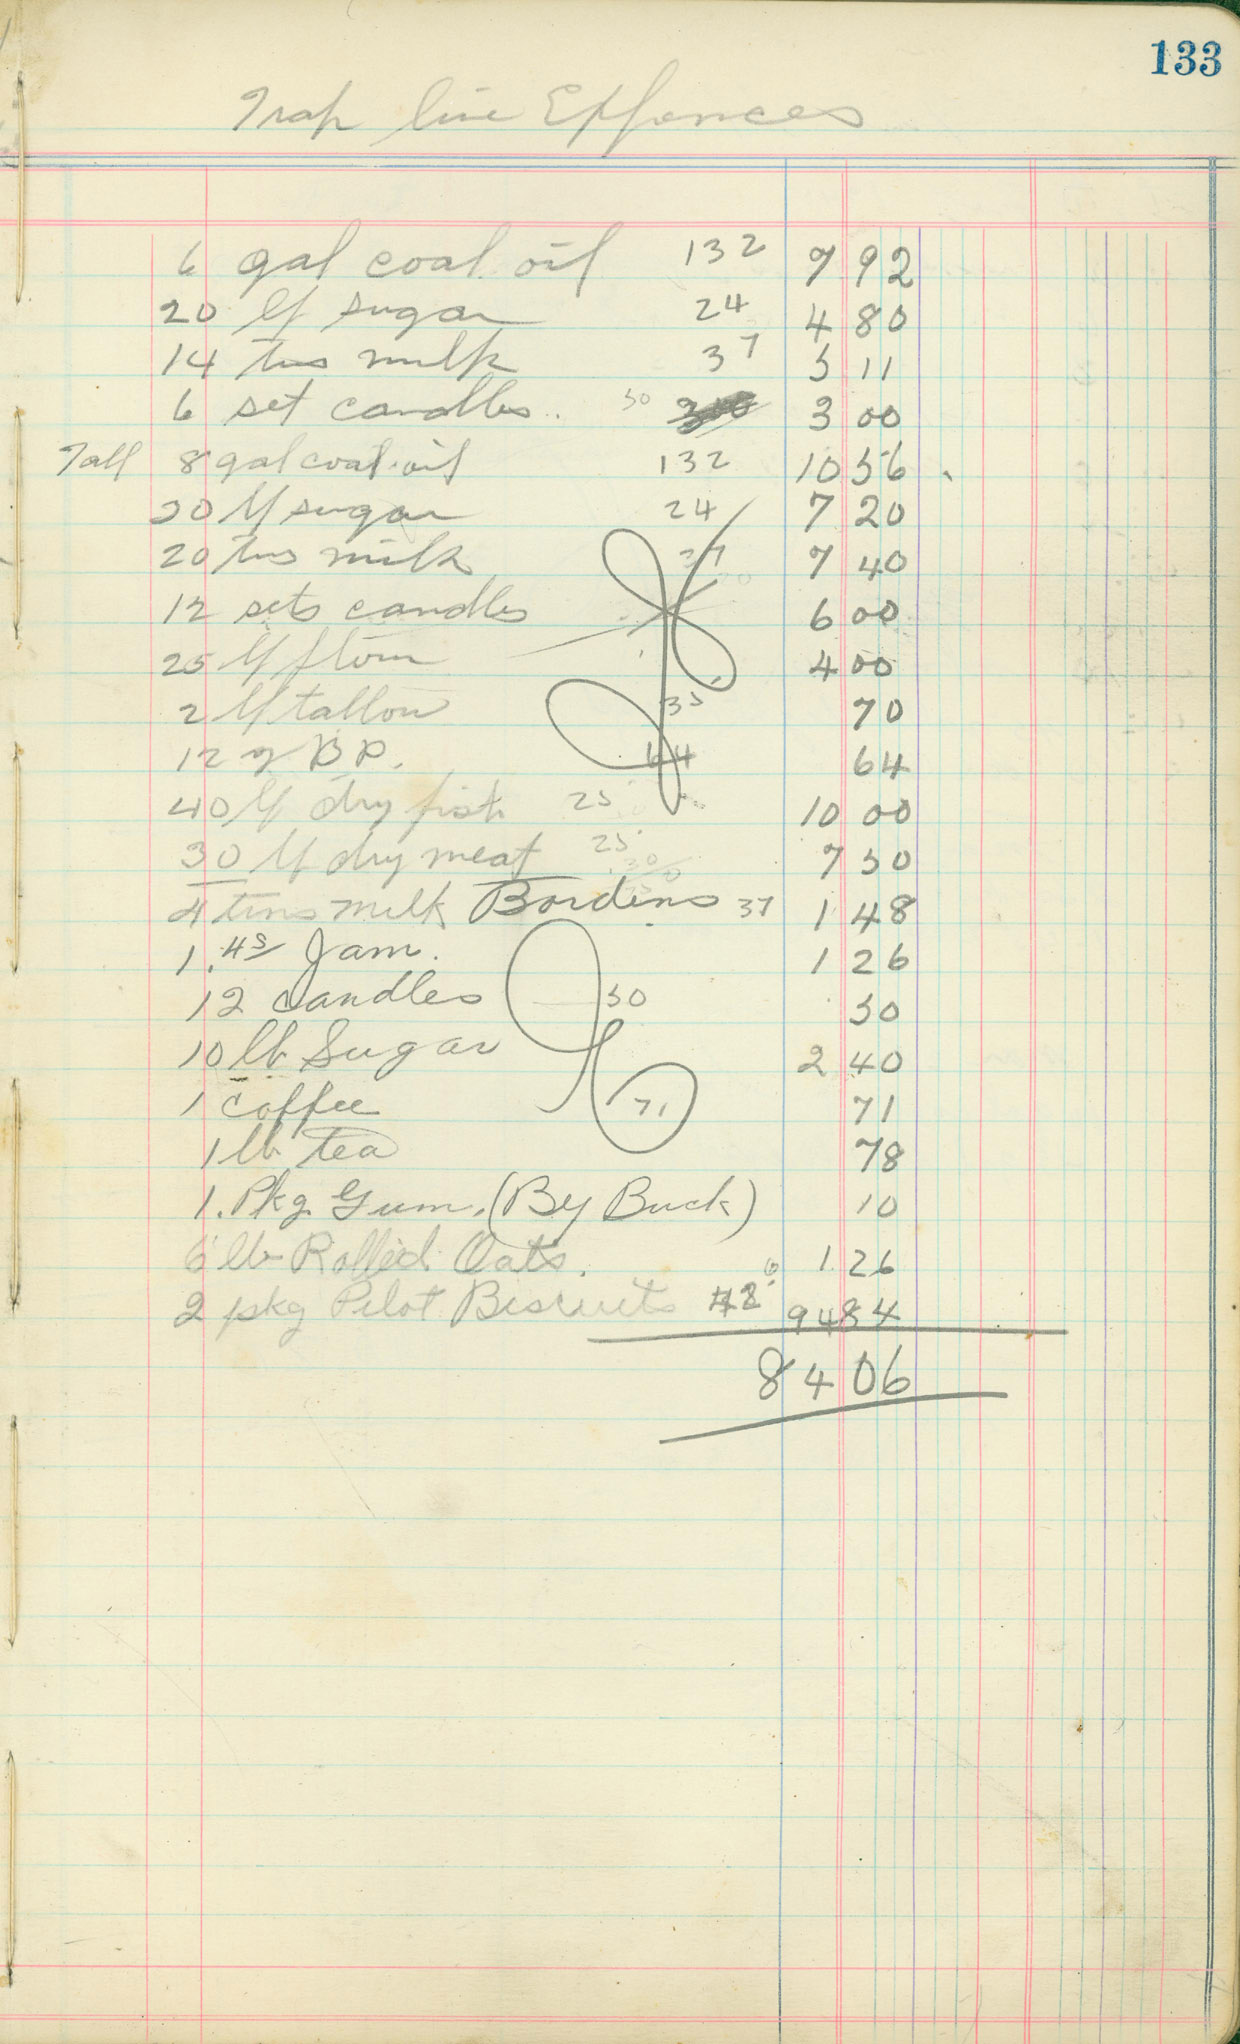 133
Trap line Expences
6 gal coal oil 132 7 92
20 lb sugar 24 4 80
14 tns milk 37 5 11
6 set candles .. 50 3 00
Tall 8 gal coal oil 132 10 56
30 lb sugar 24 7 20
20 tns milk 37 7 40
12 sets candles 6 00
25 lb flour 4 00
2 lb tallow 35 70
12 oz B P. 64 64
40 lb dry fish 25 10 00
30 lb dry meat 25 7 50
4 tins milk Bordens 37 1 48
1. 4s Jam. 1 26
12 candles 50 50
10 lb Sugar 2 40
1 coffee 71 71
1 lb tea 78
1. Pkg Gum. (By Buck) 10
6 lb Rolled Oats. 1 26
2 pkg Pilot Biscuits 94 84
84 06